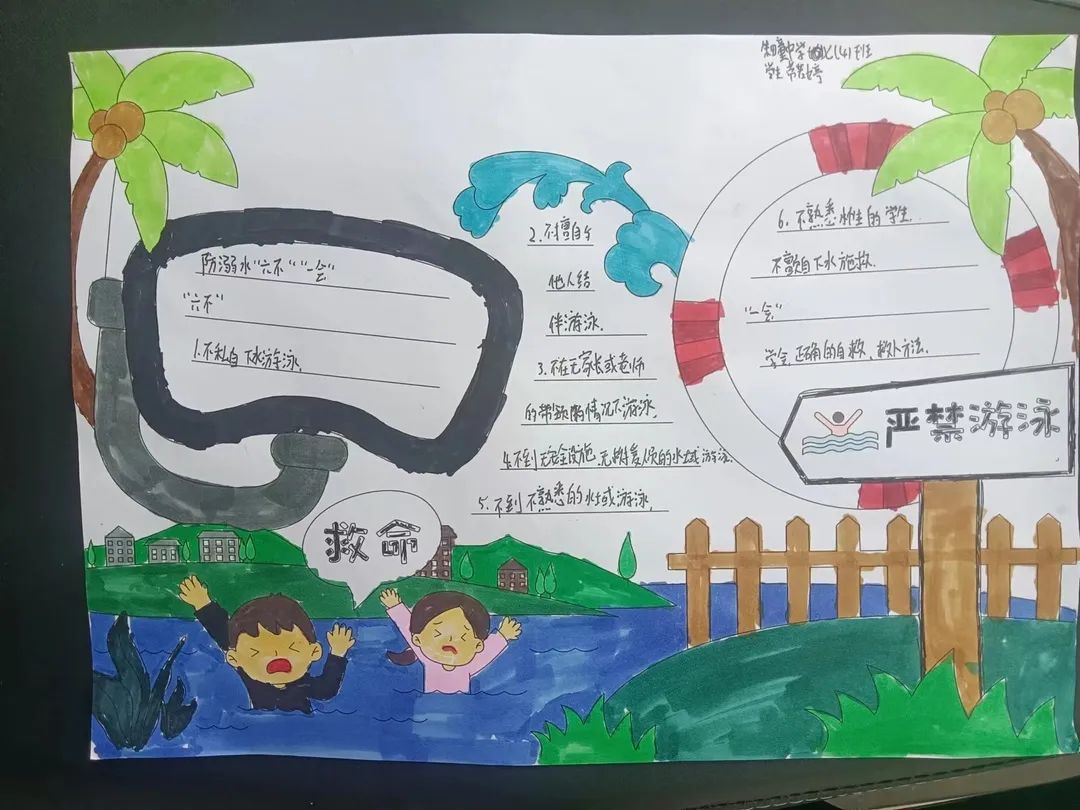 中学(4)班
学生
防溺水“六不”“一会”
“六不”
1.不私自下水游泳.
2.不擅自与
他人结
伴游泳.
3.不在无家长或老师
的带领的情况下游泳.
4.不到无安全设施.无救援人员的水域游泳.
5.不到不熟悉的水域游泳.
6.不熟悉水性的学生.
不擅自下水施救.
“一会”
学会正确的自救、救护方法.
严禁游泳
救命